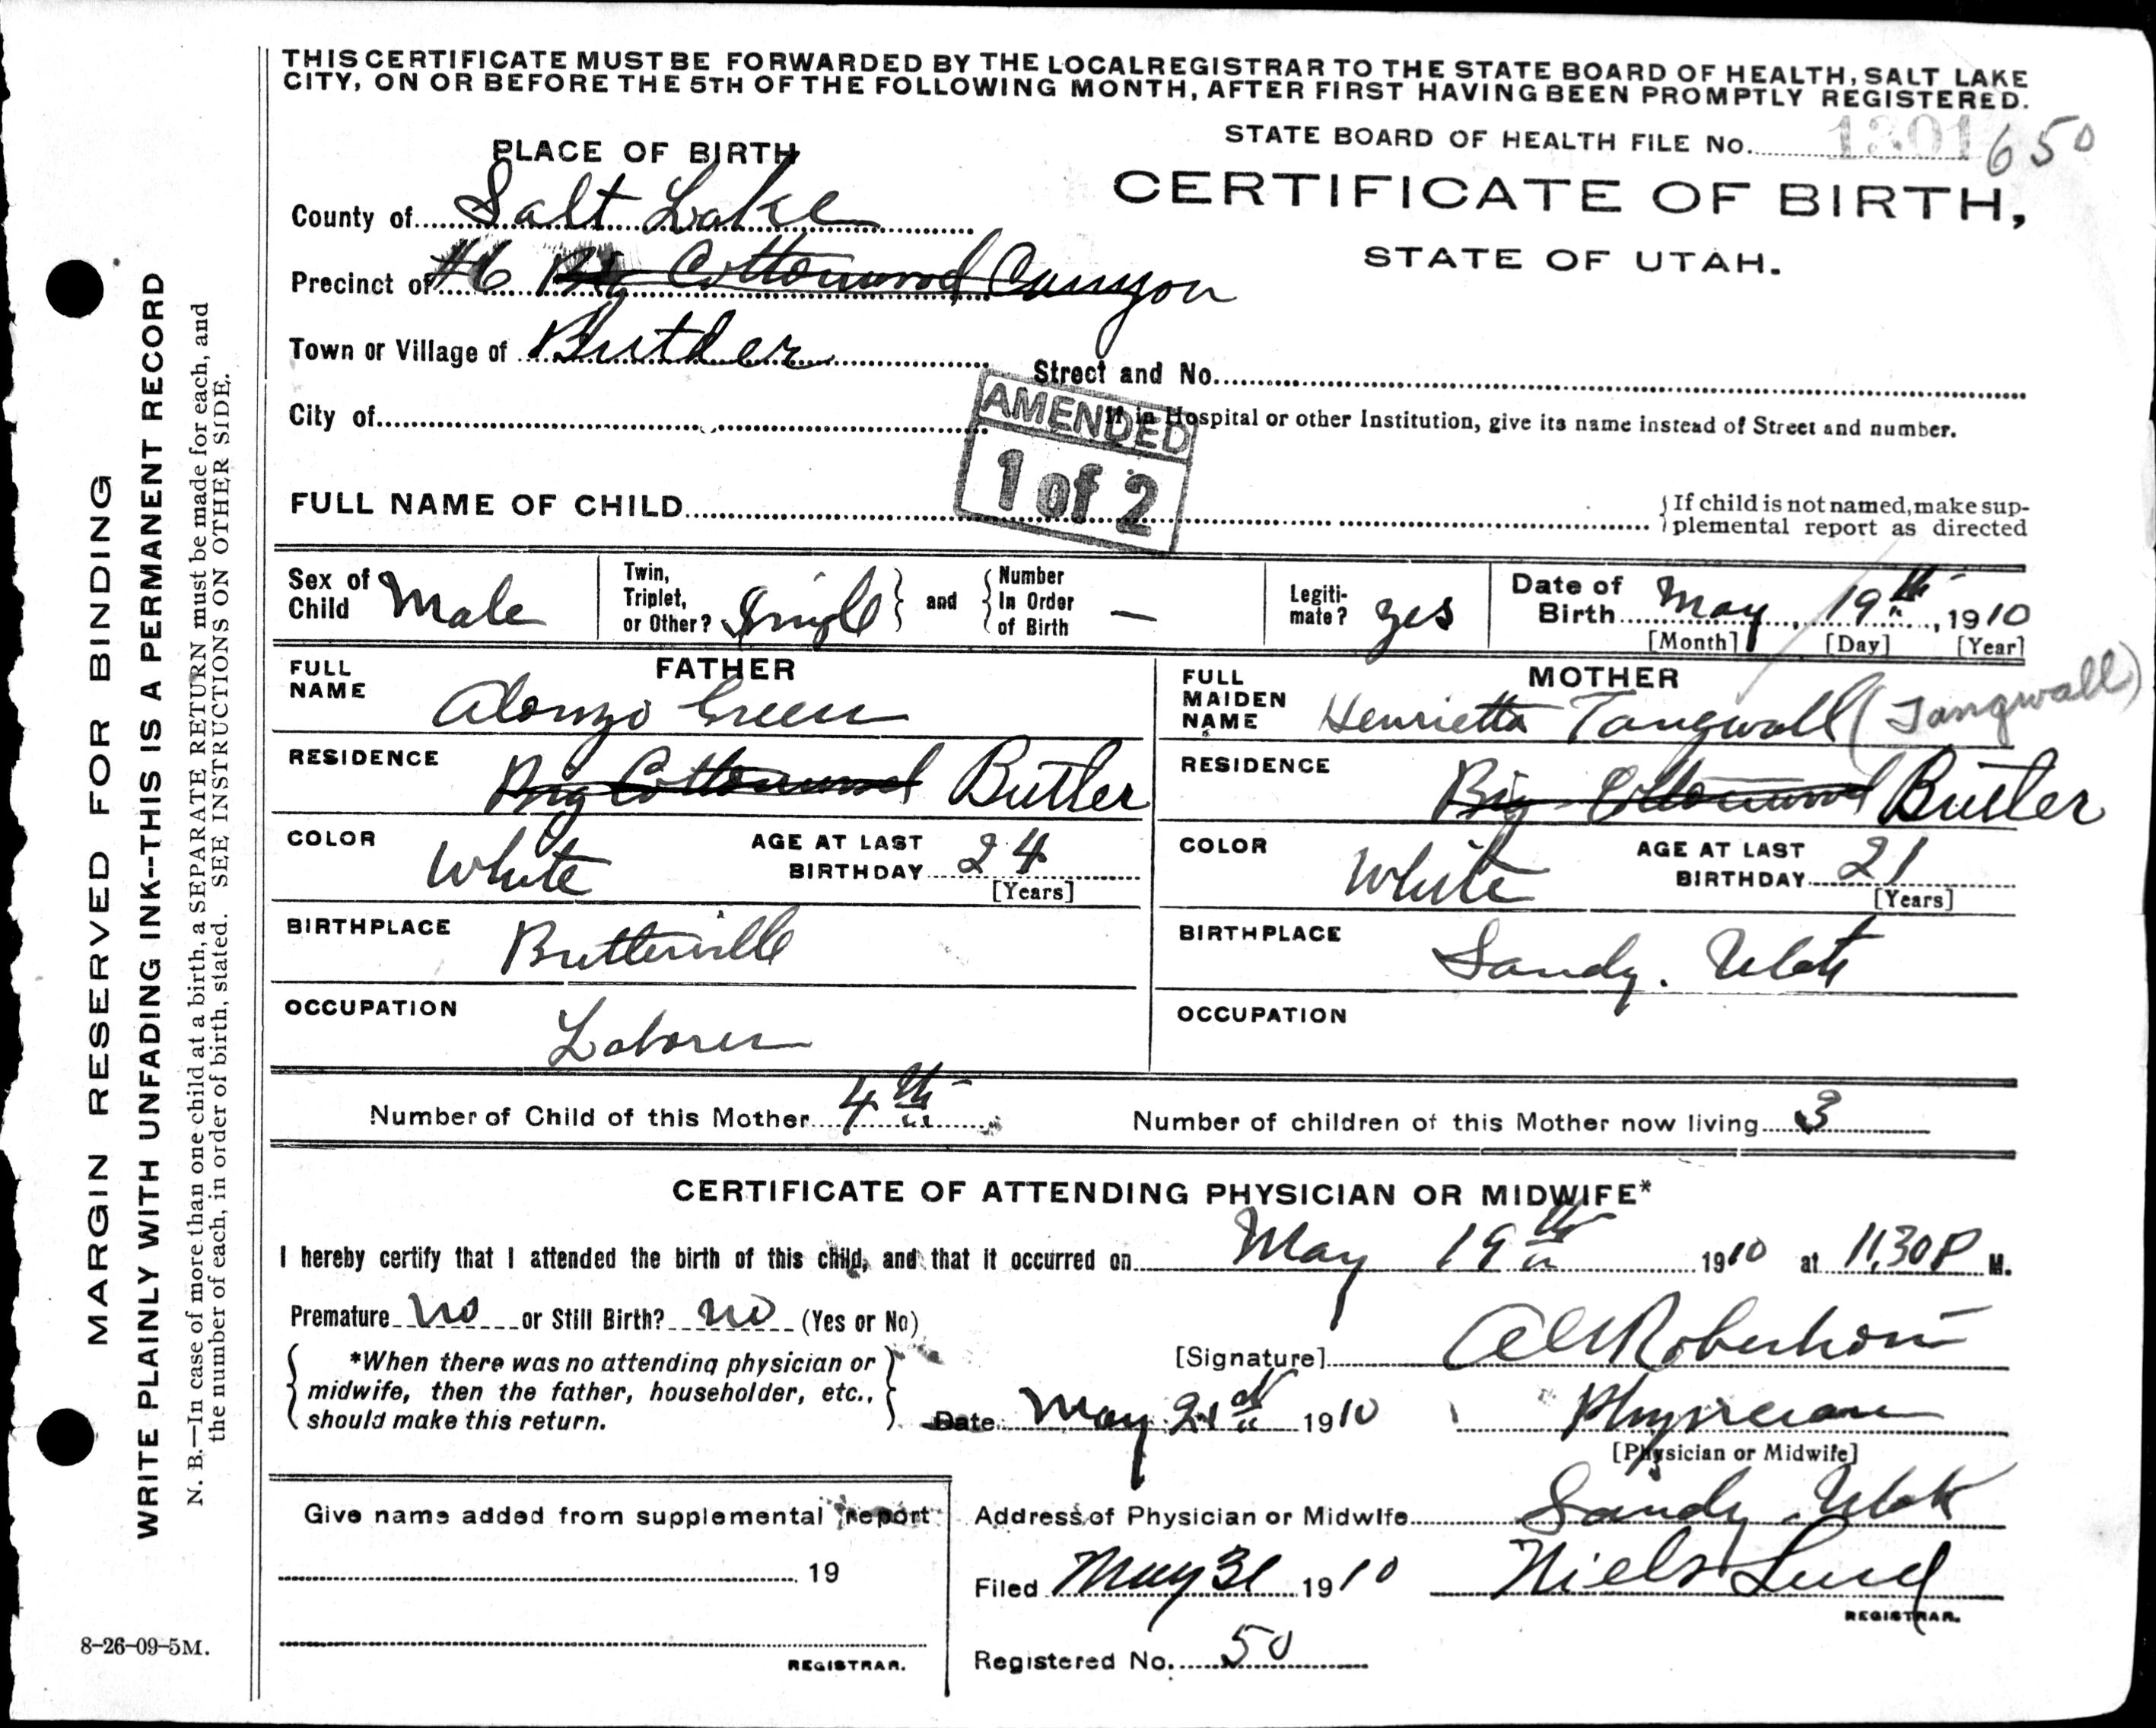 THIS CERTIFICATE MUST BE FORWARDED BY THE LOCAL REGISTRAR TO THE STATE BOARD OF HEALTH, SALT LAKE
CITY, ON OR BEFORE THE 5TH OF THE FOLLOWING MONTH, AFTER FIRST HAVING BEEN PROMPTLY REGISTERED.
STATE BOARD OF HEALTH FILE No. 1301 650
PLACE OF BIRTH
CERTIFICATE OF BIRTH,
STATE OF UTAH.
County of Salt Lake
Precinct of #6 Big Cottonwood Canyon
Town or Village of Butler
Street and No.
City of
If in Hospital or other Institution, give its name instead of Street and number.
AMENDED
1 of 2
FULL NAME OF CHILD
If child is not named, make sup-
plemental report as directed
Sex of Child Male
Twin, Triplet, or Other? Single and Number In Order of Birth —
Legiti-mate? yes
Date of Birth May, 19th, 1910
[Month] [Day] [Year]
FATHER
FULL NAME Alonzo Green
RESIDENCE Big Cottonwood Butler
COLOR White
AGE AT LAST BIRTHDAY 24
[Years]
BIRTHPLACE Butlerville
OCCUPATION Laborer
MOTHER
FULL MAIDEN NAME Henrietta Tangwall (Tangwall)
RESIDENCE Big Cottonwood Butler
COLOR White
AGE AT LAST BIRTHDAY 21
[Years]
BIRTHPLACE Sandy. Utah
OCCUPATION
Number of Child of this Mother 4th
Number of children of this Mother now living 3
CERTIFICATE OF ATTENDING PHYSICIAN OR MIDWIFE*
I hereby certify that I attended the birth of this child, and that it occurred on May 19th 1910 at 11,30 P M.
Premature no or Still Birth? no (Yes or No)
*When there was no attending physician or
midwife, then the father, householder, etc.,
should make this return.
[Signature] Robertson
Date May 21st 1910
Physician
[Physician or Midwife]
Give name added from supplemental report
19
REGISTRAR.
Address of Physician or Midwife Sandy Utah
Filed May 31 1910 Niels Lund
REGISTRAR.
Registered No. 50
MARGIN RESERVED FOR BINDING
WRITE PLAINLY WITH UNFADING INK--THIS IS A PERMANENT RECORD
N. B.—In case of more than one child at a birth, a SEPARATE RETURN must be made for each, and
the number of each, in order of birth, stated. SEE INSTRUCTIONS ON OTHER SIDE.
8-26-09-5M.